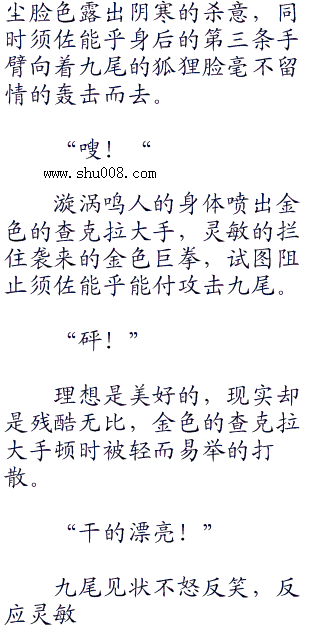 尘脸色露出阴寒的杀意，同
时须佐能乎身后的第三条手
臂向着九尾的狐狸脸毫不留
情的轰击而去。
“嗖！“
www.shu008.com
漩涡鸣人的身体喷出金
色的查克拉大手，灵敏的拦
住袭来的金色巨拳，试图阻
止须佐能乎能付攻击九尾。
“砰！”
理想是美好的，现实却
是残酷无比，金色的查克拉
大手顿时被轻而易举的打
散。
“干的漂亮！”
九尾见状不怒反笑，反
应灵敏